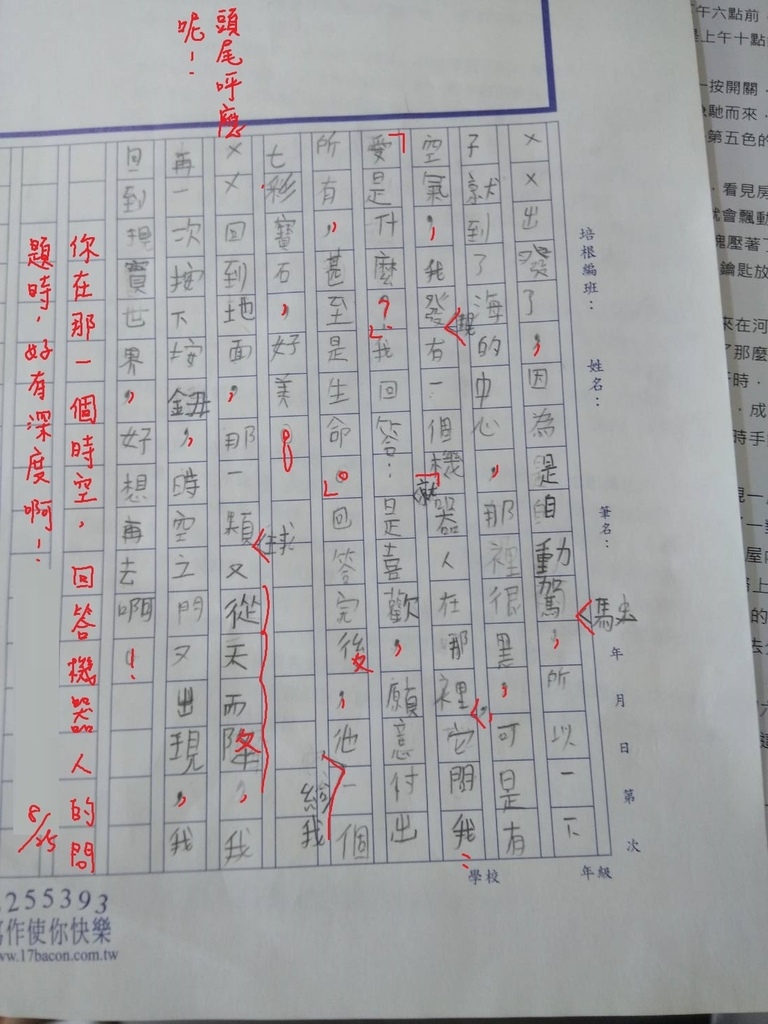 頭尾呼應
呢！
培根編班：
姓名：
筆名：
年 月 日 第 次
年級
學校
××出發了，因為是自動駕駛，所以一下
子就到了海的中心，那裡很黑，可是有
空氣，我發現有一個機器人在那裡，它問我：
「愛是什麼？」我回答：「是喜歡，願意付出
所有，甚至是生命。」回答完後，他給我一個
七彩寶石，好美！
××回到地面，那一顆球又從天而降，我
再一次按下按鈕，時空之門又出現，我
回到現實世界，好想再去啊！
你在那一個時空，回答機器人的問
題時，好有深度啊！
8/25
255393
寫作使你快樂
www.17bacon.com.tw
午六點前
上午十點
一按開關
馳而來
第五色的
看見房
就會飄動
塊壓著了
鑰匙放
來在河
了那麼
時手